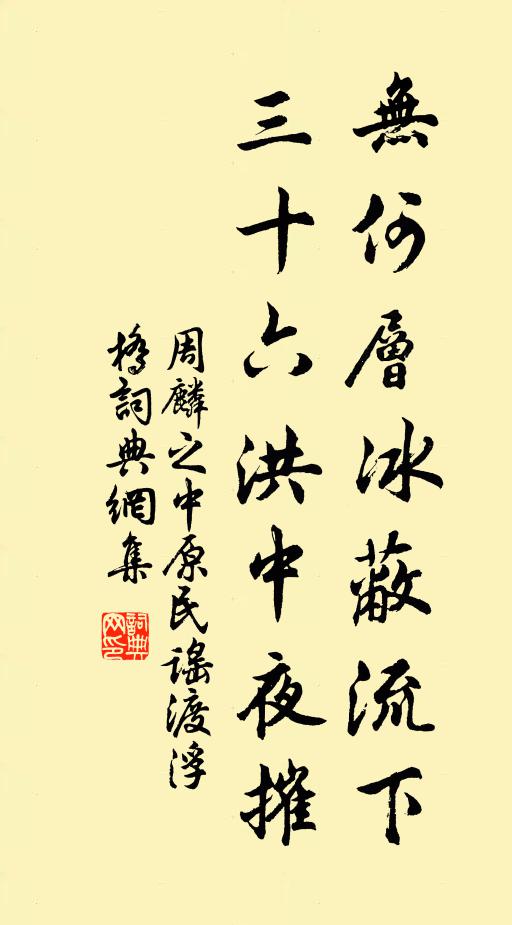 無何層冰蔽流下
三十六洪中夜摧
周麟之中原民謠渡浮
橋詞典網集
詞典
网印